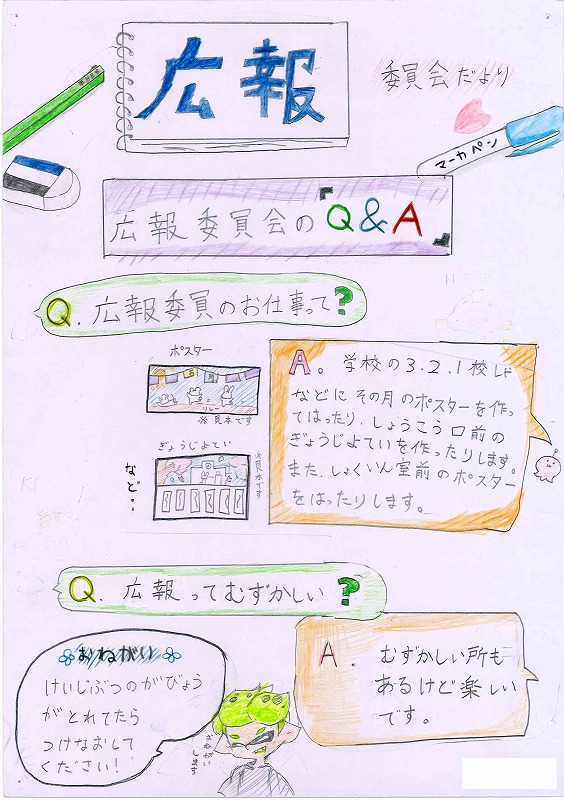 広報
委員会だより
マーカペン
広報委員会の『Q&A』
Q. 広報委員のお仕事って?
ポスター
リレー
※見本です
ぎょうじよてい
※見本です
など…
A. 学校の3.2.1校しゃ
などにその月のポスターを作っ
てはったり、しょうこう口前の
ぎょうじよていを作ったりします。
また、しょくいん室前のポスター
をはったりします。
Q. 広報ってむずかしい?
おねがい
けいじぶつのがびょう
がとれてたら
つけなおして
ください!
おねがい
します
A. むずかしい所も
あるけど楽しい
です。